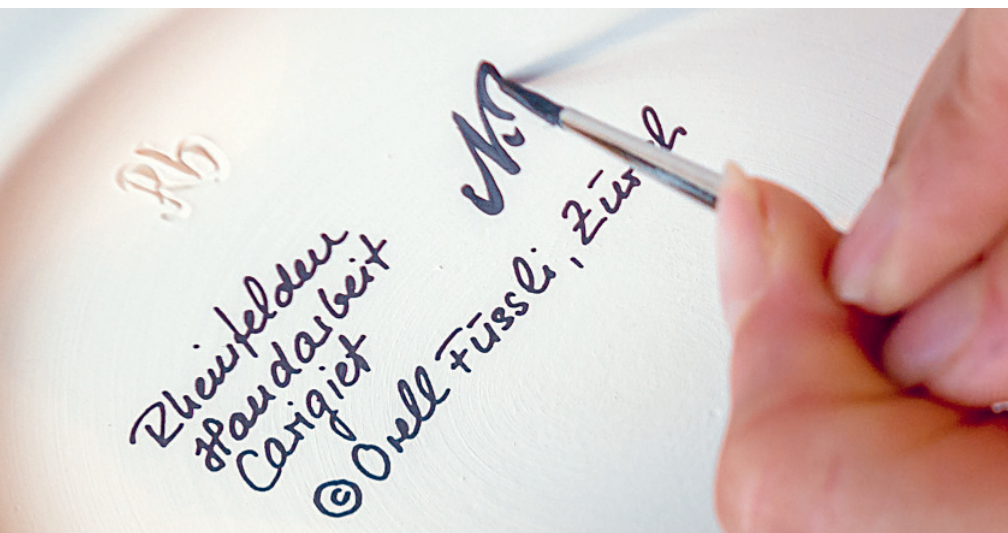 Rb
Rheinfelden
Handarbeit
Carigiet
© Orell Füssli, Zürich